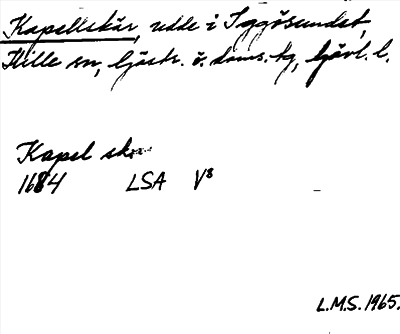 Kapellskär, udde i Iggösundet,
Hille sn, Gästr. ö. doms. hg, Gävl. l.
Kapel skär
1684 LSA V8
L.M.S. 1965.